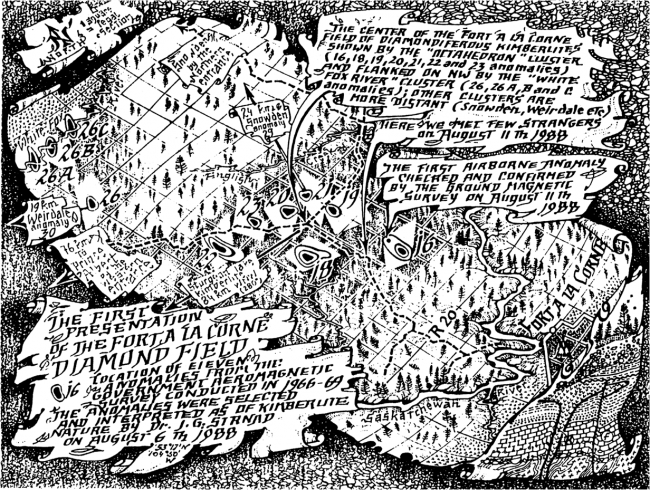 THE CENTER OF THE FORT A LA CORNE
FIELD OF DIAMONDIFEROUS KIMBERLITES
SHOWN BY THE OCTAHEDRON" CLUSTER
(16, 18, 19, 20, 21, 22 and 23 anomalies)
IS FLANKED ON NW BY THE "WHITE
FOX RIVER" CLUSTER (26, 26 A, B and C
anomalies); OTHER CLUSTERS ARE
MORE DISTANT (Snowden, Weirdale etc)
HERE WE MET FEW STRANGERS
on AUGUST 11th 1988
THE FIRST AIRBORNE ANOMALY
CHECKED AND CONFIRMED
BY THE GROUND MAGNETIC
SURVEY ON AUGUST 11th
1988
24 km to
Snowden
anomaly
29
26C
26B
26A
26
19 km
Weirdale
anomaly
30
English
18
16
IR 20
FORT A LA CORNE
Saskatchewan
THE FIRST
PRESENTATION
OF THE FORT A LA CORNE
DIAMOND FIELD
16 LOCATION OF ELEVEN
ANOMALIES FROM THE
GOVERNMENT AEROMAGNETIC
SURVEY CONDUCTED IN 1966-69
THE ANOMALIES WERE SELECTED
AND INTERPRETED AS OF KIMBERLITE
NATURE BY Dr. J. G. STRNAD
ON AUGUST 6th 1988